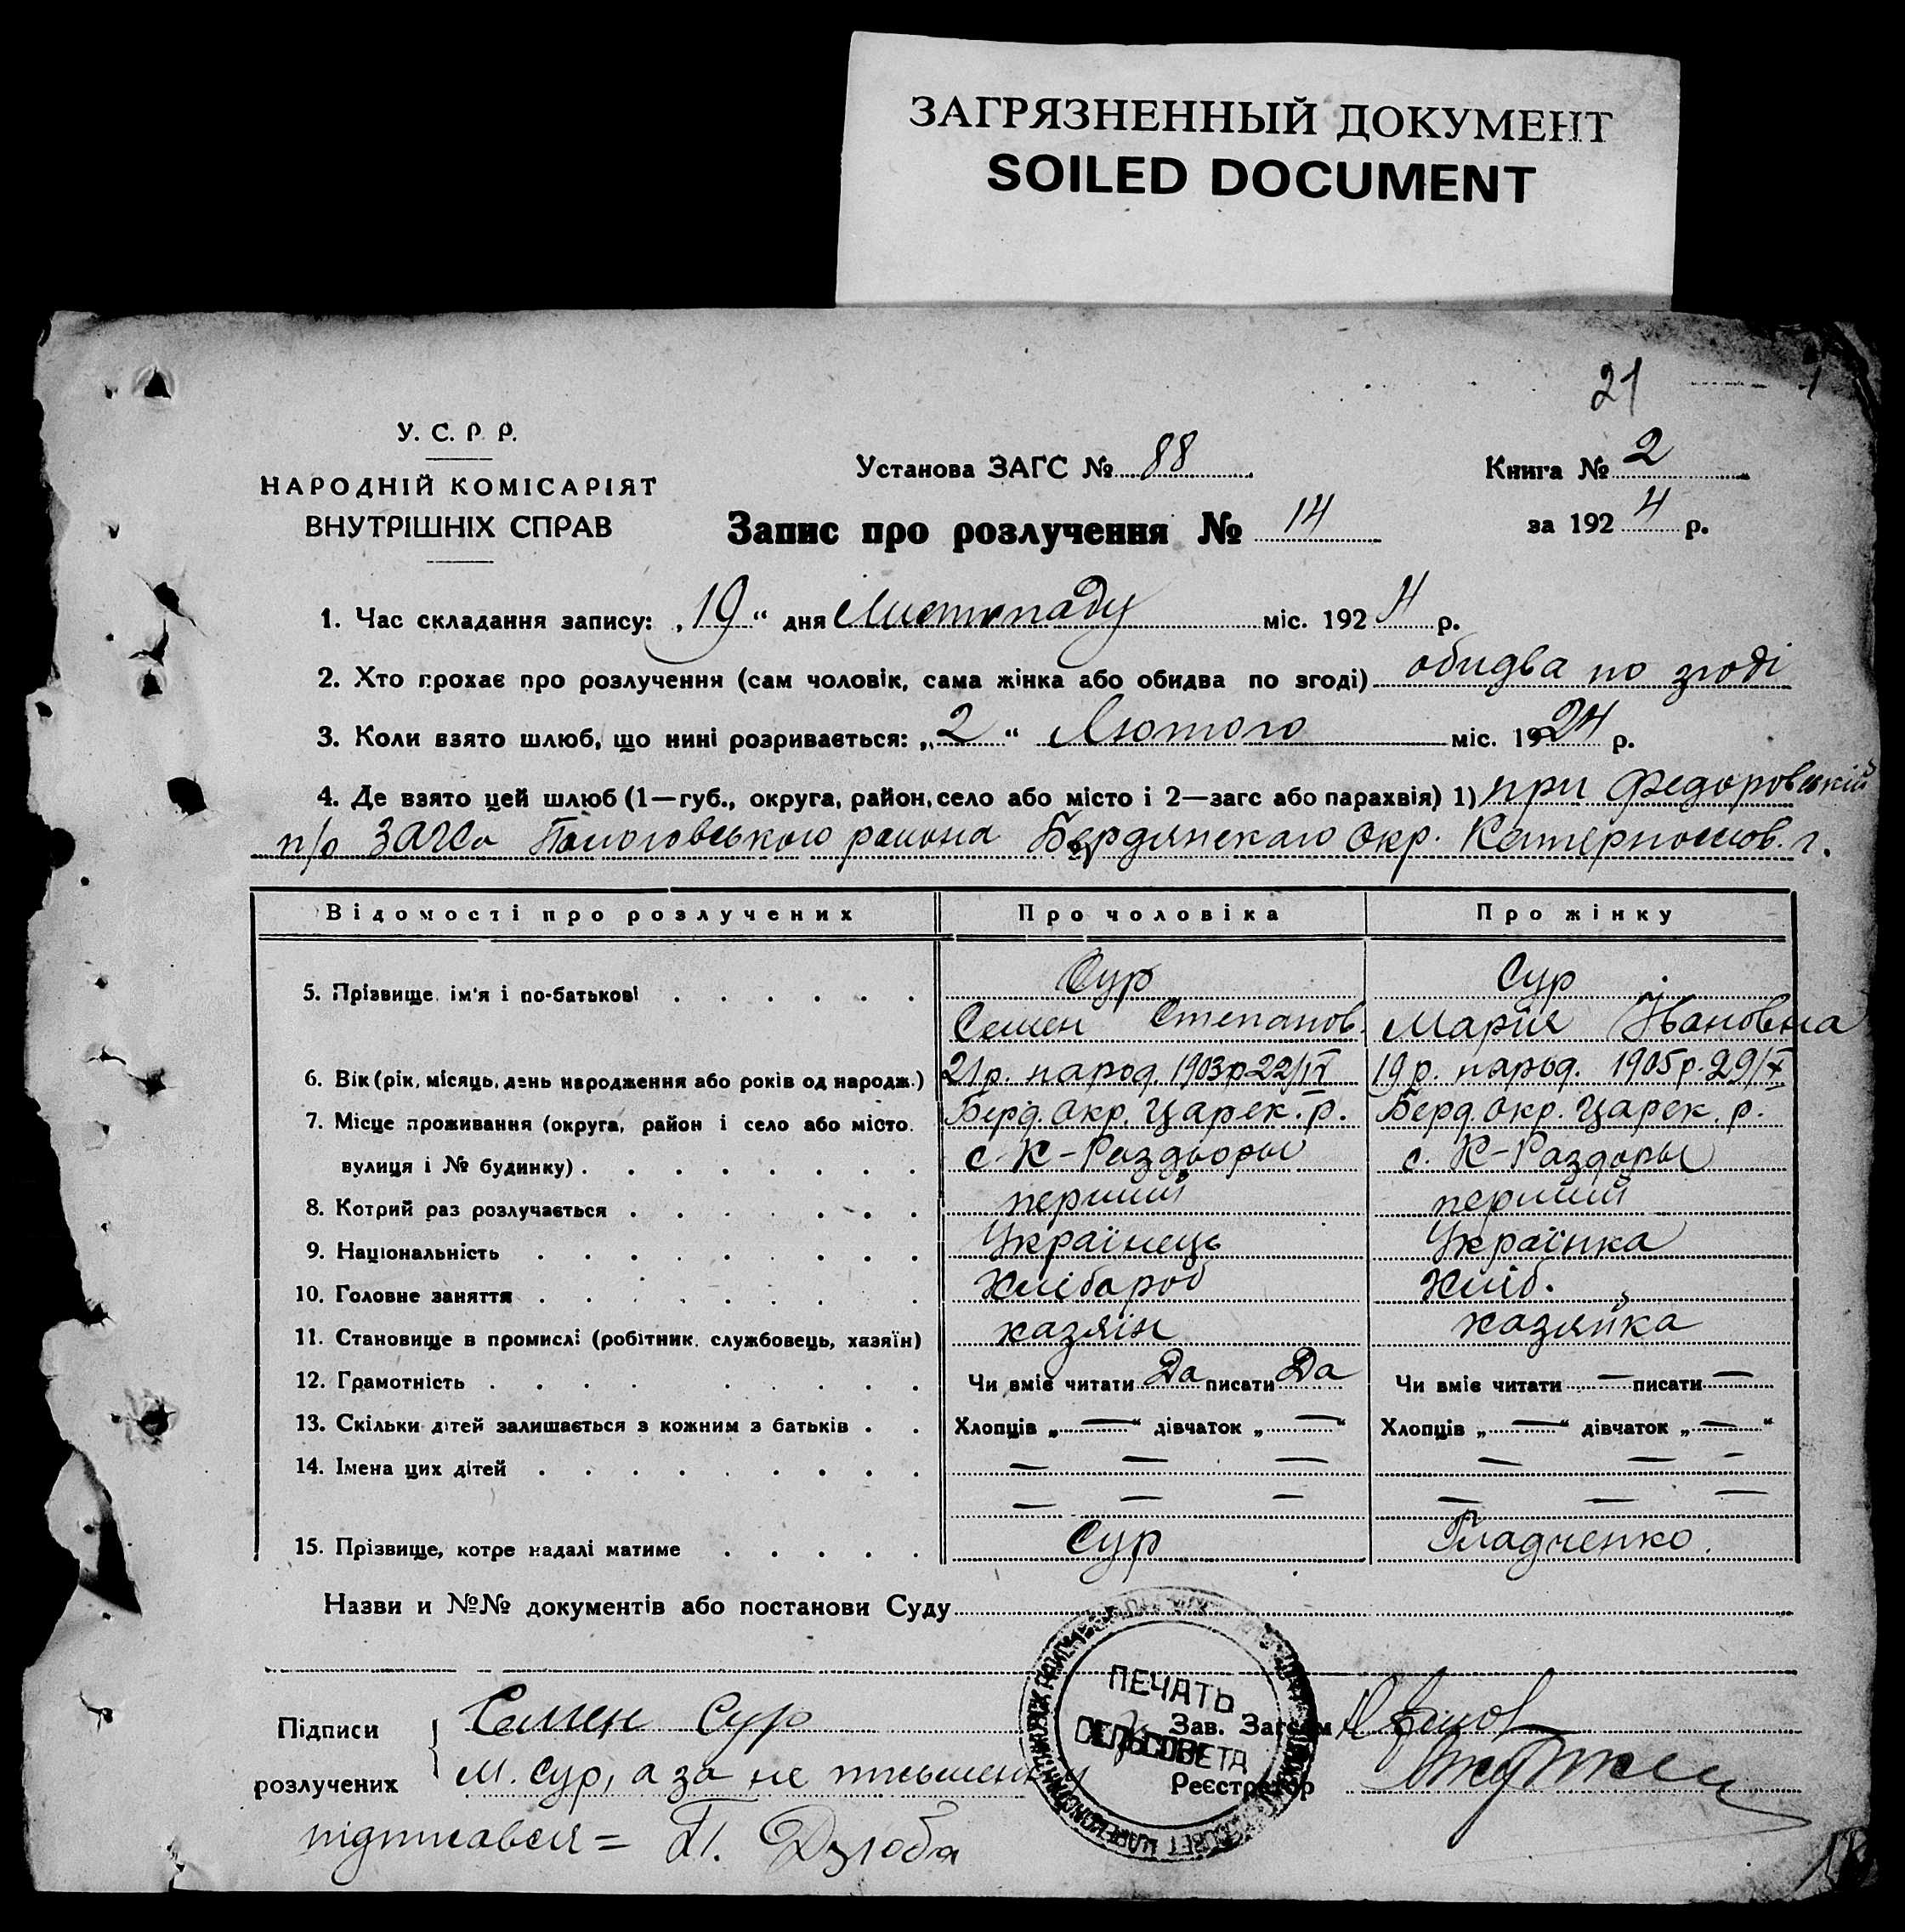 ЗАГРЯЗНЕННЫЙ ДОКУМЕНТ
SOILED DOCUMENT
21
У. С. Р. Р.
НАРОДНІЙ КОМІСАРІЯТ
ВНУТРІШНІХ СПРАВ
Установа ЗАГС № 88
Книга № 2
Запис про розлучення № 14
за 1924 р.
1. Час складання запису: „19“ дня Листопаду міс. 1924 р.
2. Хто прохає про розлучення (сам чоловік, сама жінка або обидва по згоді) обидва по згоді
3. Коли взято шлюб, що нині розривається: „2“ Лютого міс. 1924 р.
4. Де взято цей шлюб (1—губ., округа, район, село або місто і 2—загс або парахвія) 1) при Федоровській
п/о ЗАГСа Пологовського района Бердянскаго Окр. Катеринослов. г.
Відомості про розлучених Про чоловіка Про жінку
5. Прізвище, ім'я і по-батькові Сур Сур
Семен Степанов. Мария Івановна
6. Вік (рік, місяць, день народження або років од народж.) 21 р. народ. 1903 р 22/IV 19 р. народ. 1905 р. 29/X
7. Місце проживання (округа, район і село або місто, Берд. Окр. Царек. р. Берд. Окр. Царек. р.
вулиця і № будинку) с. К-Раздоры с. К-Раздоры
8. Котрий раз розлучається перший перший
9. Національність Українець Українка
10. Головне заняття Хлібороб Хліб.
11. Становище в промислі (робітник, службовець, хазяїн) хазяїн хазяйка
12. Грамотність Чи вміє читати Да писати Да Чи вміє читати — писати —
13. Скільки дітей залишається з кожним з батьків Хлопців „—“ дівчаток „—“ Хлопців „—“ дівчаток „—“
14. Імена цих дітей — — — — — —
— — — — — —
15. Прізвище, котре надалі матиме Сур Гладченко.
Назви и №№ документів або постанови Суду
ПЕЧАТЬ
СЕЛЬСОВЕТА
Підписи Семен Сур Зав. Загсом
розлучених М. Сур, а за не письменну Реєстратор
підписався = П. Дзюба